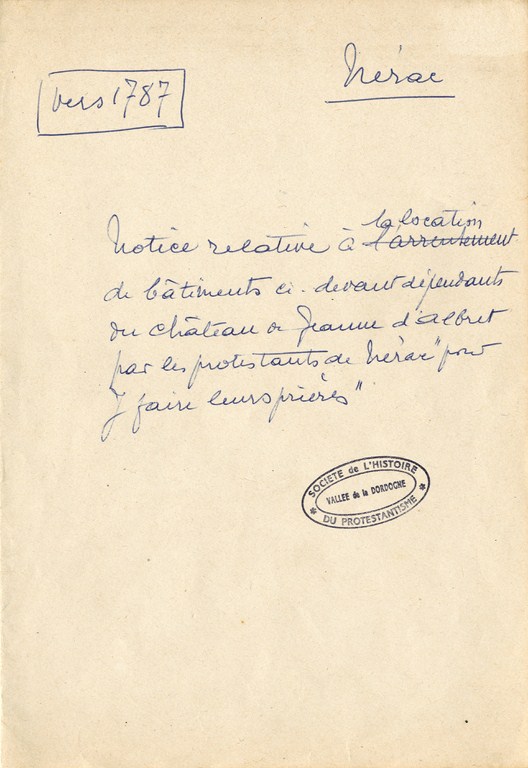 Nérac
vers 1787
Notice relative à la location l'arrentement
de bâtiments ci-devant dépendants
du château de Jeanne d'Albret
par les protestants de Nérac "pour
y faire leurs prières"
SOCIETE de L'HISTOIRE
VALLEE de la DORDOGNE
DU PROTESTANTISME